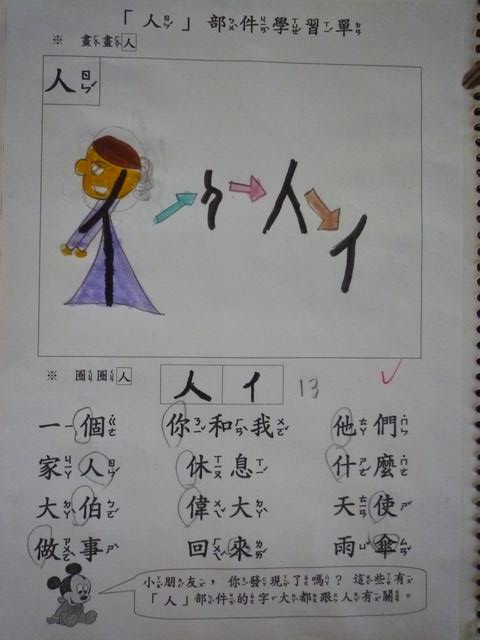 「人」部ㄅㄨˋ件ㄐㄧㄢˋ學ㄒㄩㄝˊ習ㄒㄧˊ單ㄉㄢ
※ 畫ㄏㄨㄚˋ畫ㄏㄨㄚˋ人
人ㄖㄣˊ
人 亻
※ 圈ㄑㄩㄢ圈ㄑㄩㄢ人
人 亻 13
一ㄧ個ㄍㄜ˙ 你ㄋㄧˇ和ㄏㄢˋ我ㄨㄛˇ 他ㄊㄚ們ㄇㄣ˙
家ㄐㄧㄚ人ㄖㄣˊ 休ㄒㄧㄡ息ㄒㄧˊ 什ㄕㄜˊ麼ㄇㄜ˙
大ㄉㄚˋ伯ㄅㄛˊ 偉ㄨㄟˇ大ㄉㄚˋ 天ㄊㄧㄢ使ㄕˇ
做ㄗㄨㄛˋ事ㄕˋ 回ㄏㄨㄟˊ來ㄌㄞˊ 雨ㄩˇ傘ㄙㄢˇ
小ㄒㄧㄠˇ朋ㄆㄥˊ友ㄧㄡˇ，你ㄋㄧˇ發ㄈㄚ現ㄒㄧㄢˋ了ㄌㄜ˙嗎ㄇㄚ˙？這ㄓㄜˋ些ㄒㄧㄝ有ㄧㄡˇ
「人ㄖㄣˊ」部ㄅㄨˋ件ㄐㄧㄢˋ的ㄉㄜ˙字ㄗˋ大ㄉㄚˋ都ㄉㄡ跟ㄍㄣ人ㄖㄣˊ有ㄧㄡˇ關ㄍㄨㄢ。